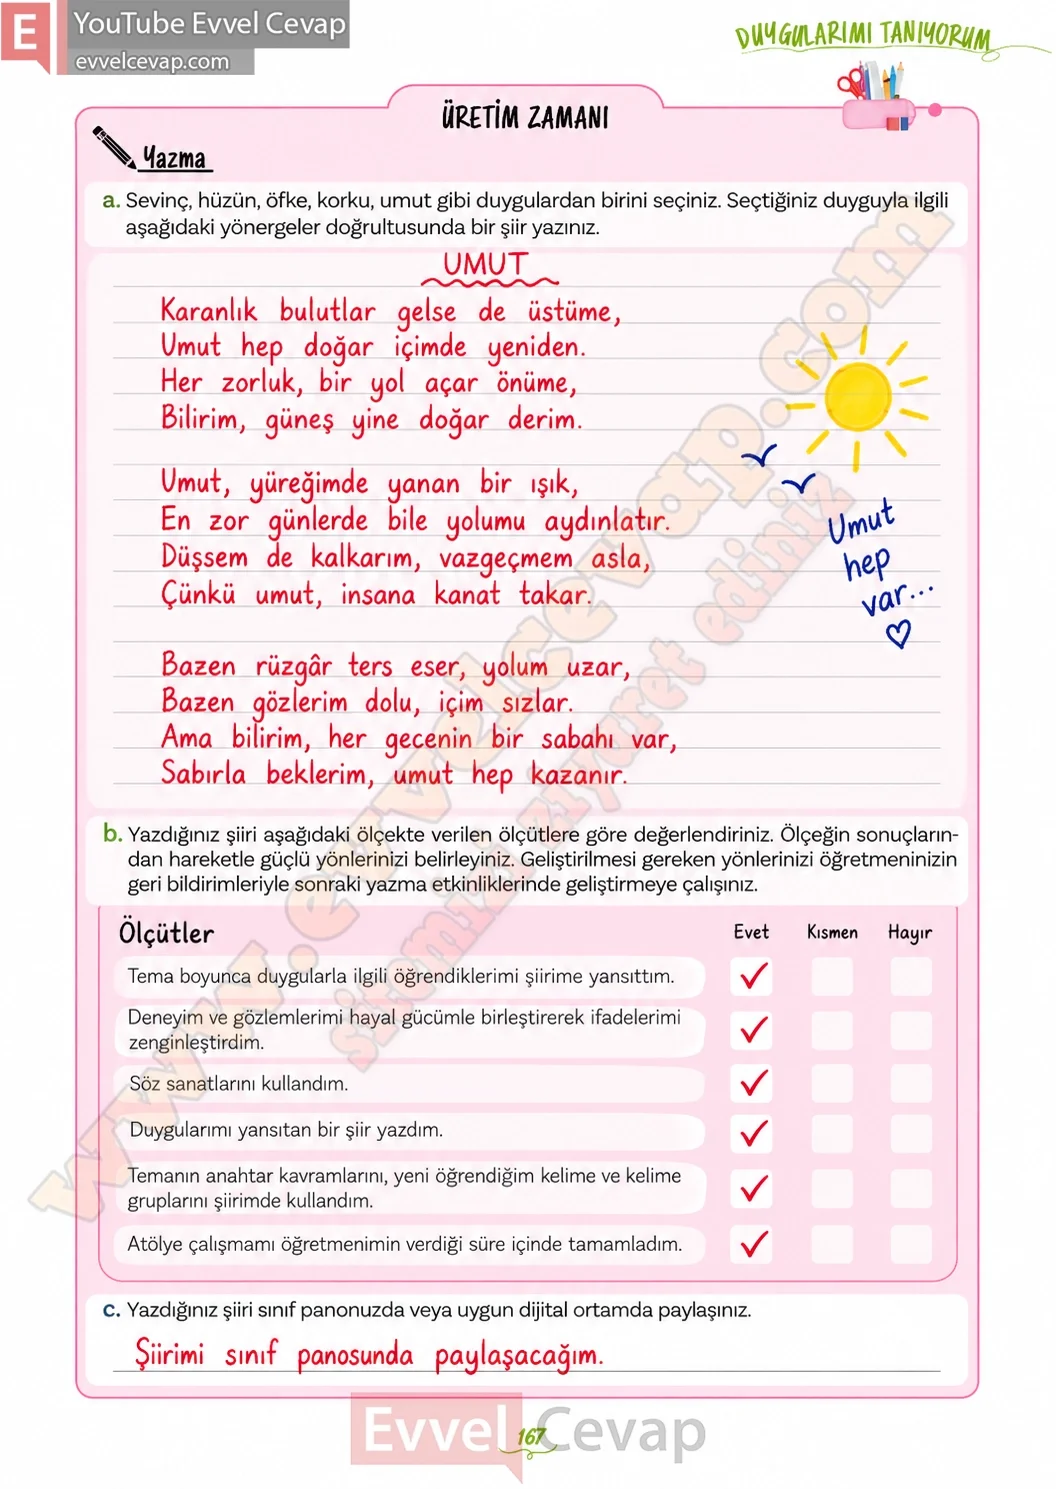 YouTube Evvel Cevap
evvelcevap.com
DUYGULARIMI TANIYORUM
ÜRETİM ZAMANI
Yazma
a. Sevinç, hüzün, öfke, korku, umut gibi duygulardan birini seçiniz. Seçtiğiniz duyguyla ilgili
aşağıdaki yönergeler doğrultusunda bir şiir yazınız.
UMUT
Karanlık bulutlar gelse de üstüme,
Umut hep doğar içimde yeniden.
Her zorluk, bir yol açar önüme,
Bilirim, güneş yine doğar derim.
Umut, yüreğimde yanan bir ışık,
En zor günlerde bile yolumu aydınlatır.
Düşsem de kalkarım, vazgeçmem asla,
Çünkü umut, insana kanat takar.
Bazen rüzgâr ters eser, yolum uzar,
Bazen gözlerim dolu, içim sızlar.
Ama bilirim, her gecenin bir sabahı var,
Sabırla beklerim, umut hep kazanır.
Umut
hep
var...
b. Yazdığınız şiiri aşağıdaki ölçekte verilen ölçütlere göre değerlendiriniz. Ölçeğin sonuçların-
dan hareketle güçlü yönlerinizi belirleyiniz. Geliştirilmesi gereken yönlerinizi öğretmeninizin
geri bildirimleriyle sonraki yazma etkinliklerinde geliştirmeye çalışınız.
Ölçütler Evet Kısmen Hayır
Tema boyunca duygularla ilgili öğrendiklerimi şiirime yansıttım.
Deneyim ve gözlemlerimi hayal gücümle birleştirerek ifadelerimi
zenginleştirdim.
Söz sanatlarını kullandım.
Duygularımı yansıtan bir şiir yazdım.
Temanın anahtar kavramlarını, yeni öğrendiğim kelime ve kelime
gruplarını şiirimde kullandım.
Atölye çalışmamı öğretmenimin verdiği süre içinde tamamladım.
c. Yazdığınız şiiri sınıf panonuzda veya uygun dijital ortamda paylaşınız.
Şiirimi sınıf panosunda paylaşacağım.
Evvel Cevap
167
www.evvelcevap.com
sitemizi ziyaret ediniz